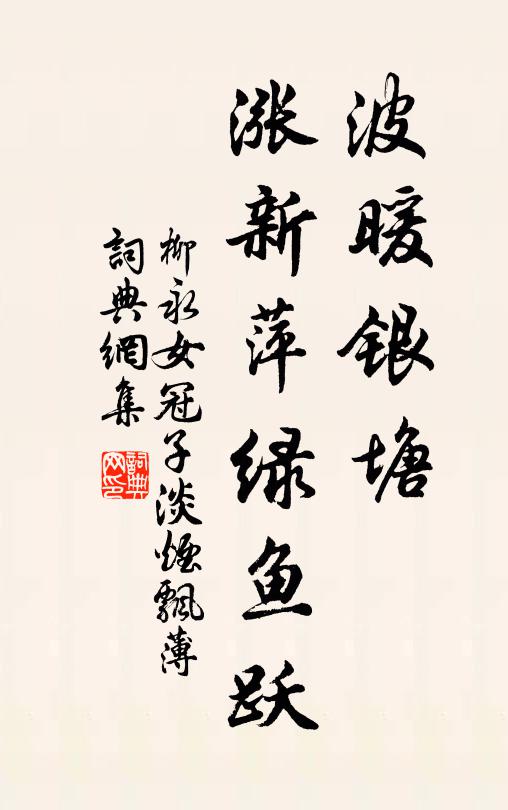 波暖银塘
涨新萍绿鱼跃
柳永女冠子淡煙飄薄
詞典網集
詞典网印